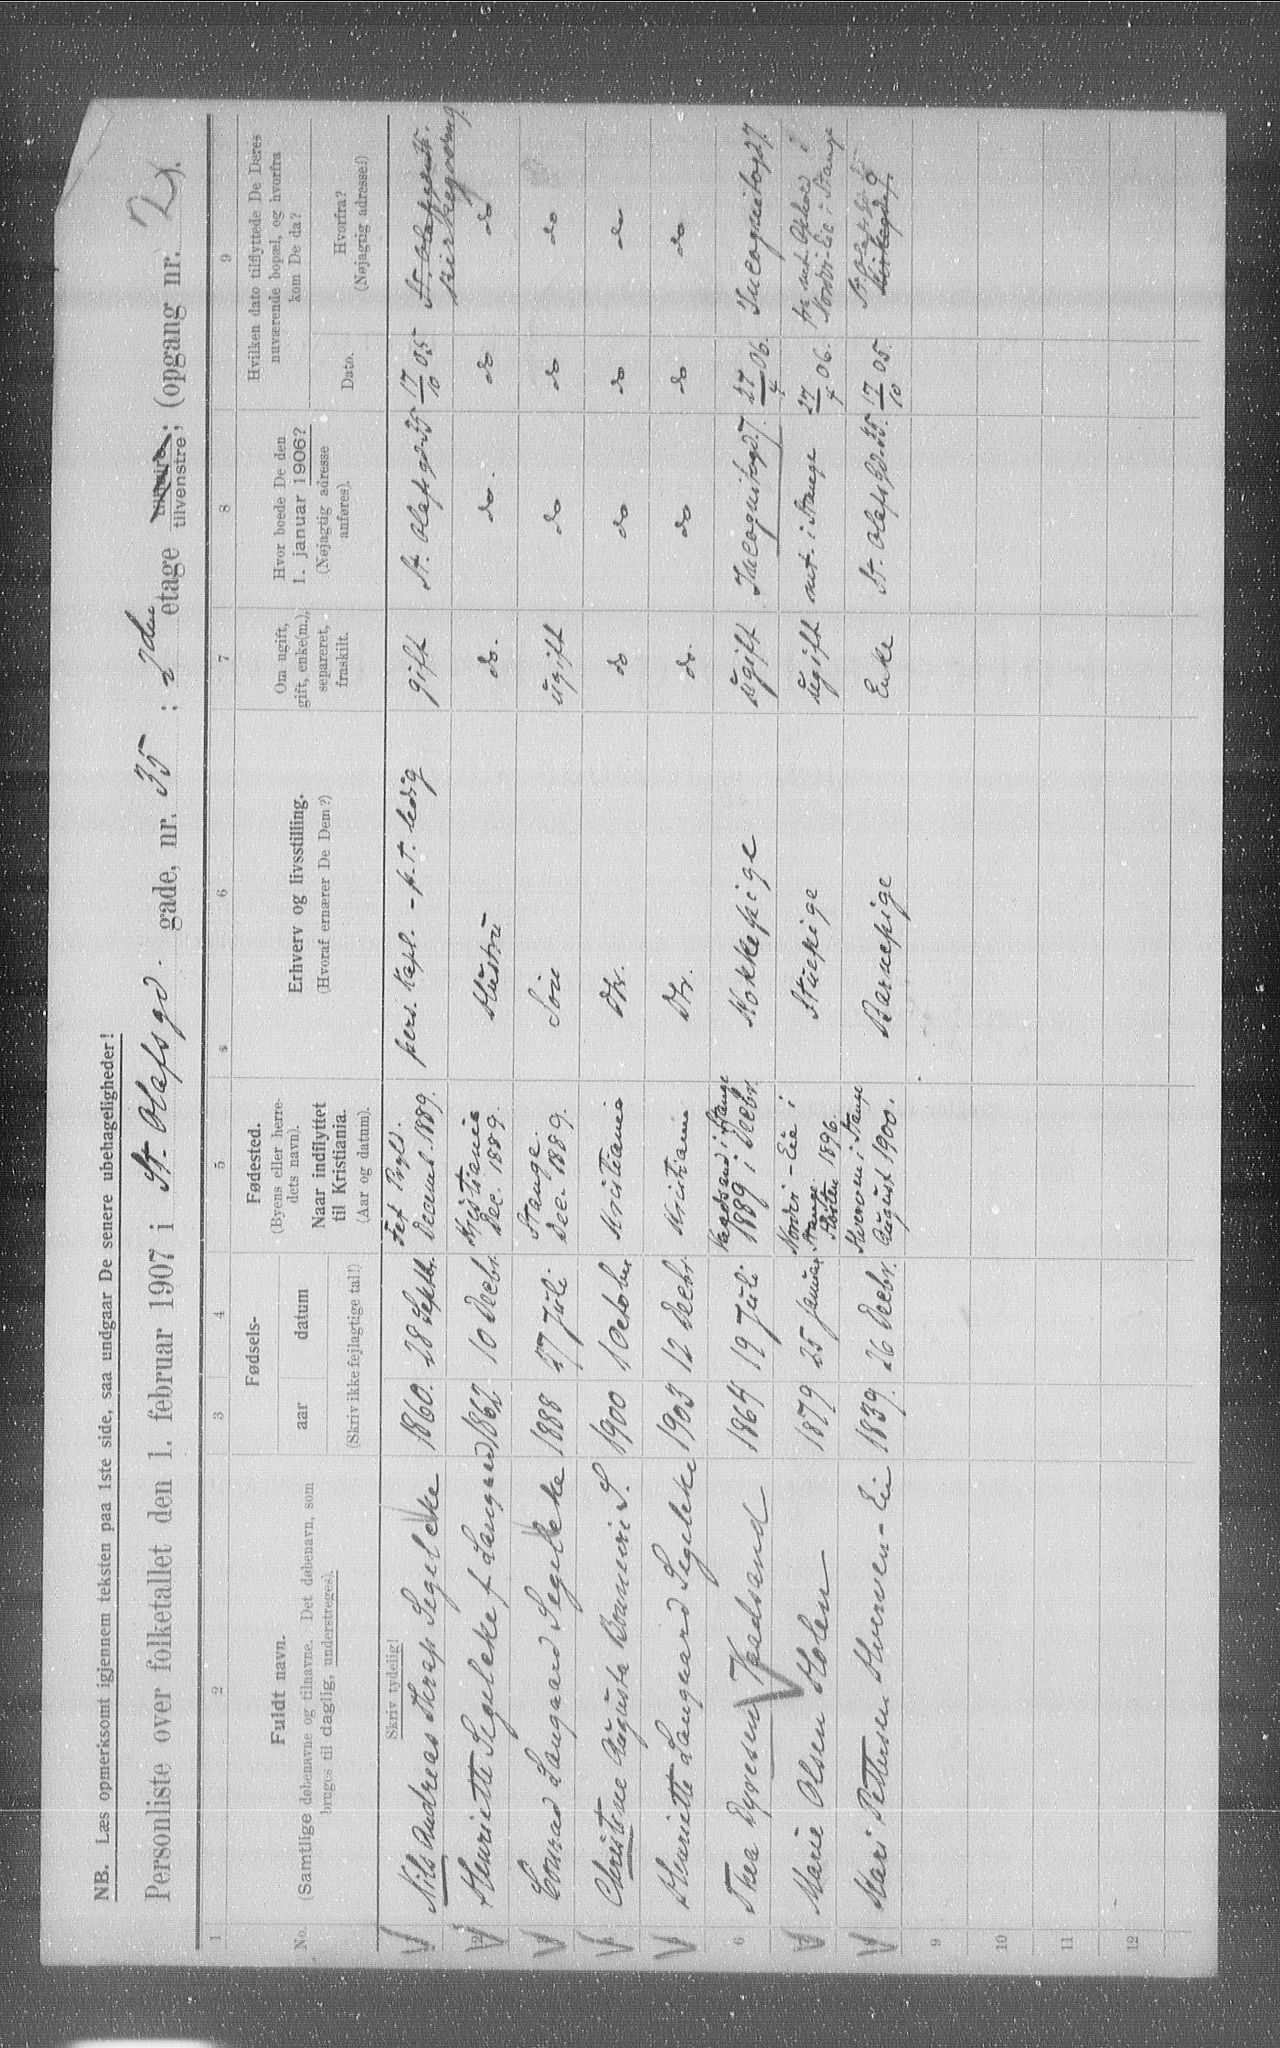 NB. Læs opmerksomt igjennem teksten paa 1ste side, saa undgaar De senere ubehageligheder!
Personliste over folketallet den 1. februar 1907 i St. Olafs gd. gade, nr. 35; 2den etage tilhøire; tilvenstre; (opgang nr. ).
1 2 3 4 5 6 7 8 9
No.
Fuldt navn.
(Samtlige døbenavne og tilnavne. Det døbenavn, som
bruges til daglig, understreges).
Fødsels-
aar datum
(Skriv ikke fejlagtige tal!)
Fødested.
(Byens eller herre-
dets navn).
Naar indflyttet
til Kristiania.
(Aar og datum).
Erhverv og livsstilling.
(Hvoraf ernærer De Dem?)
Om ugift,
gift, enke(m.),
separeret,
fraskilt.
Hvor boede De den
1. januar 1906?
(Nøjagtig adresse
anføres).
Hvilken dato tilflyttede De Deres
nuværende bopæl, og hvorfra
kom De da?
Dato.
Hvorfra?
(Nøjagtig adresse!)
Skriv tydelig!
1 Nils Andreas Krap Segelcke 1860. 28 Septbr. Fet Decemb 1889. pers. Kapl. - p.t. ledig gift St. Olafs gd 35 17/10 05
2 Henriette Segelcke f Langaard 1862 10 Decbr. Kristiania Dec. 1889. Hustru do. do. do do
3 Conrad Langaard Segelcke 1888 27 Juli Stange. Dec. 1889. Søn ugift do do do
4 Christine Augusta S. 1900 1 October Kristiania Dtr. do do do do
5 Henriette Langaard Segelcke 1903 12 Decbr Kristiania Dtr. do. do do do
6 Thea Dyresen Vaadsand 1864 19 Juli i Stange 1889 i Decbr. Kokkepige ugift Incognitogd 7. 27/4 06. Incognitogd 7.
7 Marie Olsen Holen 1879 25 Januar Nordvi-Eie i Stange Høsten 1896. Stuepige ugift mt. i Stange 27/4 06. fra mt. Ophold i Nordvi-Eie i Stange
8 Kari Pettersen Hverven-Eie 1839. 26 Decbr. Hverven i Stange August 1900. Barnepige Enke St. Olafs Gd. 35. 17/10 05.
9
10
11
12